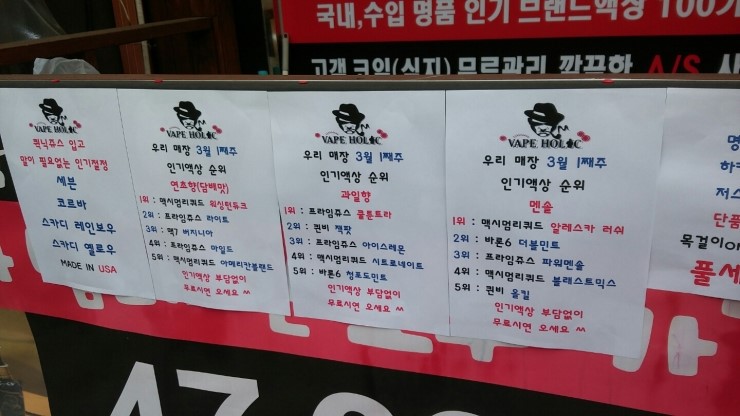 국내,수입 명품 인기 브랜드액상 100가
고객 코일(심지) 무료관리 깔끔한 A/S 사
VAPE HOLIC
퀵닉쥬스 입고
말이 필요없는 인기절정
세븐
코르바
스카디 레인보우
스카디 옐로우
MADE IN USA
VAPE HOLIC
우리 매장 3월 1째주
인기액상 순위
연초향(담배맛)
1위 : 맥시멈리퀴드 워싱턴듀크
2위 : 프라임쥬스 라이트
3위 : 잭7 버지니아
4위 : 프라임쥬스 마일드
5위 : 맥시멈리퀴드 아메리카블랜드
인기액상 부담없이
무료시연 오세요 ^^
VAPE HOLIC
우리 매장 3월 1째주
인기액상 순위
과일향
1위 : 프라임쥬스 쿨튼트라
2위 : 퀸비 잭팟
3위 : 프라임쥬스 아이스레몬
4위 : 맥시멈리퀴드 시트로네이트
5위 : 바론6 청포도민트
인기액상 부담없이
무료시연 오세요 ^^
VAPE HOLIC
우리 매장 3월 1째주
인기액상 순위
멘솔
1위 : 맥시멈리퀴드 알레스카 러쉬
2위 : 바론6 더블민트
3위 : 프라임쥬스 파워멘솔
4위 : 맥시멈리퀴드 블래스트믹스
5위 : 퀸비 올킬
인기액상 부담없이
무료시연 오세요 ^^
단품
목걸이or
풀세